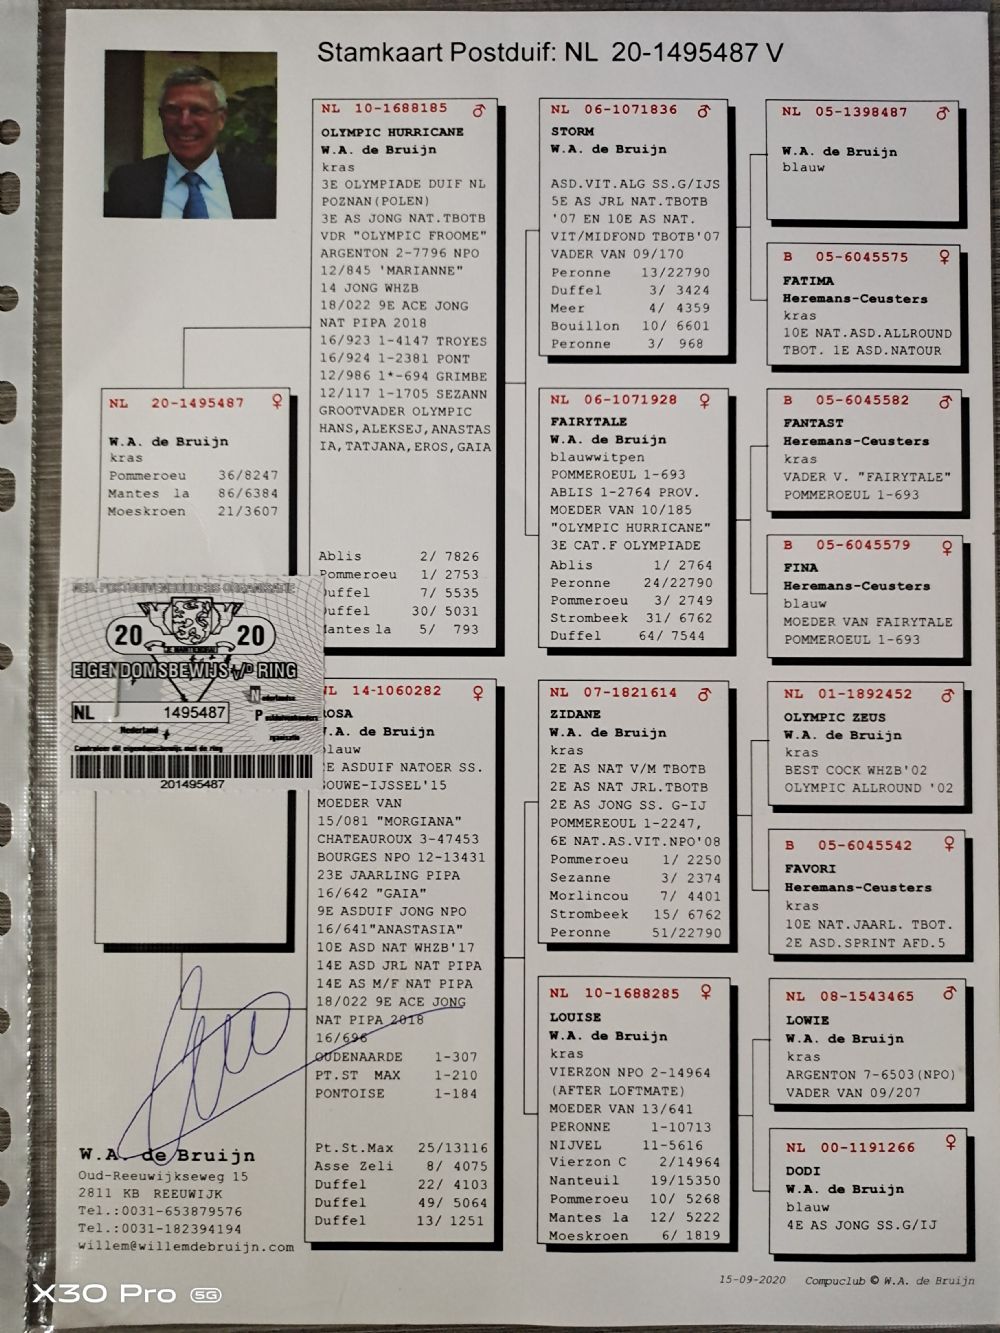 Stamkaart Postduif: NL 20-1495487 V
NL 20-1495487 ♀
W.A. de Bruijn
kras
Pommeroeu 36/8247
Mantes la 86/6384
Moeskroen 21/3607
NED. POSTDUIVENHOUDERS ORGANISATIE
20 20
EIGENDOMSBEWIJS v/D RING
NL 1495487
Nederland
Nederlandse
Postduivenhouders
rganisatie
Controleer dit eigendomsbewijs met de ring
201495487
W.A. de Bruijn
Oud-Reeuwijkseweg 15
2811 KB REEUWIJK
Tel.:0031-653879576
Tel.:0031-182394194
willem@willemdebruijn.com
NL 10-1688185 ♂
OLYMPIC HURRICANE
W.A. de Bruijn
kras
3E OLYMPIADE DUIF NL
POZNAN(POLEN)
3E AS JONG NAT.TBOTB
VDR "OLYMPIC FROOME"
ARGENTON 2-7796 NPO
12/845 'MARIANNE"
14 JONG WHZB
18/022 9E ACE JONG
NAT PIPA 2018
16/923 1-4147 TROYES
16/924 1-2381 PONT
12/986 1*-694 GRIMBE
12/117 1-1705 SEZANN
GROOTVADER OLYMPIC
HANS,ALEKSEJ,ANASTAS
IA,TATJANA,EROS,GAIA
Ablis 2/ 7826
Pommeroeu 1/ 2753
Duffel 7/ 5535
Duffel 30/ 5031
Mantes la 5/ 793
NL 14-1060282 ♀
ROSA
W.A. de Bruijn
blauw
E ASDUIF NATOER SS.
GOUWE-IJSSEL'15
MOEDER VAN
15/081 "MORGIANA"
CHATEAUROUX 3-47453
BOURGES NPO 12-13431
23E JAARLING PIPA
16/642 "GAIA"
9E ASDUIF JONG NPO
16/641"ANASTASIA"
10E ASD NAT WHZB'17
14E ASD JRL NAT PIPA
14E AS M/F NAT PIPA
18/022 9E ACE JONG
NAT PIPA 2018
16/696
OUDENAARDE 1-307
PT.ST MAX 1-210
PONTOISE 1-184
Pt.St.Max 25/13116
Asse Zeli 8/ 4075
Duffel 22/ 4103
Duffel 49/ 5064
Duffel 13/ 1251
NL 06-1071836 ♂
STORM
W.A. de Bruijn
ASD.VIT.ALG SS.G/IJS
5E AS JRL NAT.TBOTB
'07 EN 10E AS NAT.
VIT/MIDFOND TBOTB'07
VADER VAN 09/170
Peronne 13/22790
Duffel 3/ 3424
Meer 4/ 4359
Bouillon 10/ 6601
Peronne 3/ 968
NL 06-1071928 ♀
FAIRYTALE
W.A. de Bruijn
blauwwitpen
POMMEROEUL 1-693
ABLIS 1-2764 PROV.
MOEDER VAN 10/185
"OLYMPIC HURRICANE"
3E CAT.F OLYMPIADE
Ablis 1/ 2764
Peronne 24/22790
Pommeroeu 3/ 2749
Strombeek 31/ 6762
Duffel 64/ 7544
NL 07-1821614 ♂
ZIDANE
W.A. de Bruijn
kras
2E AS NAT V/M TBOTB
2E AS NAT JRL.TBOTB
2E AS JONG SS. G-IJ
POMMEREOUL 1-2247,
6E NAT.AS.VIT.NPO'08
Pommeroeu 1/ 2250
Sezanne 3/ 2374
Morlincou 7/ 4401
Strombeek 15/ 6762
Peronne 51/22790
NL 10-1688285 ♀
LOUISE
W.A. de Bruijn
kras
VIERZON NPO 2-14964
(AFTER LOFTMATE)
MOEDER VAN 13/641
PERONNE 1-10713
NIJVEL 11-5616
Vierzon C 2/14964
Nanteuil 19/15350
Pommeroeu 10/ 5268
Mantes la 12/ 5222
Moeskroen 6/ 1819
NL 05-1398487 ♂
W.A. de Bruijn
blauw
B 05-6045575 ♀
FATIMA
Heremans-Ceusters
kras
10E NAT.ASD.ALLROUND
TBOT. 1E ASD.NATOUR
B 05-6045582 ♂
FANTAST
Heremans-Ceusters
kras
VADER V. "FAIRYTALE"
POMMEROEUL 1-693
B 05-6045579 ♀
FINA
Heremans-Ceusters
blauw
MOEDER VAN FAIRYTALE
POMMEROEUL 1-693
NL 01-1892452 ♂
OLYMPIC ZEUS
W.A. de Bruijn
kras
BEST COCK WHZB'02
OLYMPIC ALLROUND '02
B 05-6045542 ♀
FAVORI
Heremans-Ceusters
kras
10E NAT.JAARL. TBOT.
2E ASD.SPRINT AFD.5
NL 08-1543465 ♂
LOWIE
W.A. de Bruijn
kras
ARGENTON 7-6503(NPO)
VADER VAN 09/207
NL 00-1191266 ♀
DODI
W.A. de Bruijn
blauw
4E AS JONG SS.G/IJ
15-09-2020 Compuclub © W.A. de Bruijn
X30 Pro 5G